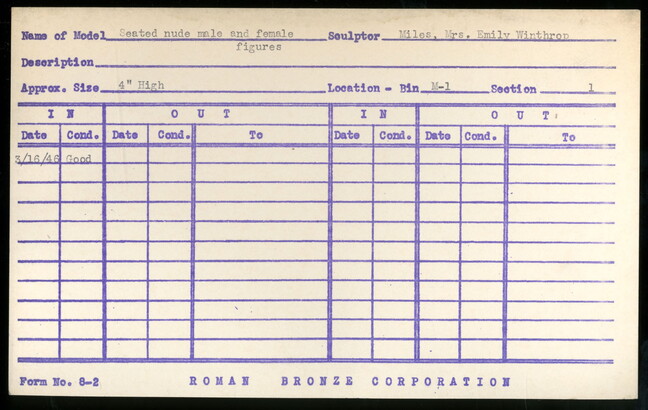 Name of Model Seated nude male and female figures Sculptor Miles, Mrs. Emily Winthrop
Description
Approx. Size 4" High Location - Bin M-1 Section 1
IN OUT IN OUT
Date Cond. Date Cond. To Date Cond. Date Cond. To
3/16/46 Good
Form No. 8-2 ROMAN BRONZE CORPORATION